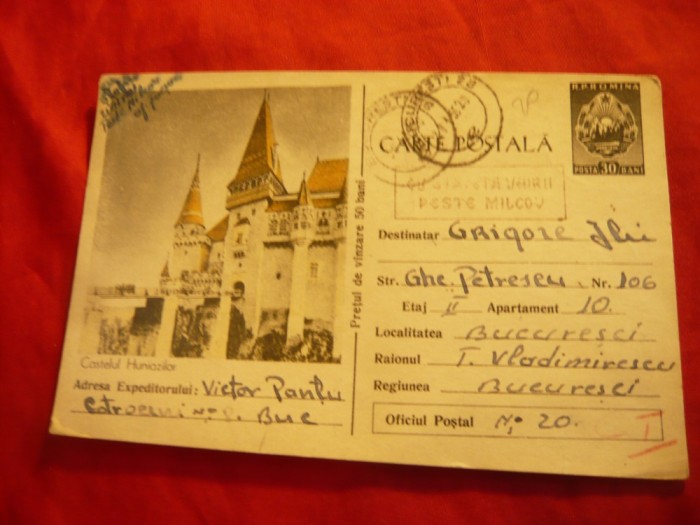 R.P. ROMINA
POSTA 30 BANI
CARTE POSTALĂ
PESTE MILCOV
Prețul de vînzare 50 bani
Destinatar Grigore Ilie
Str. Ghe. Petrescu. Nr. 106
Etaj II Apartament 10.
Localitatea Bucuresci
Raionul T. Vladimirescu
Regiunea Bucuresci
Oficiul Poștal No 20.
T
Castelul Huniazilor
Adresa Expeditorului: Victor Panțu
Cotroceni Buc